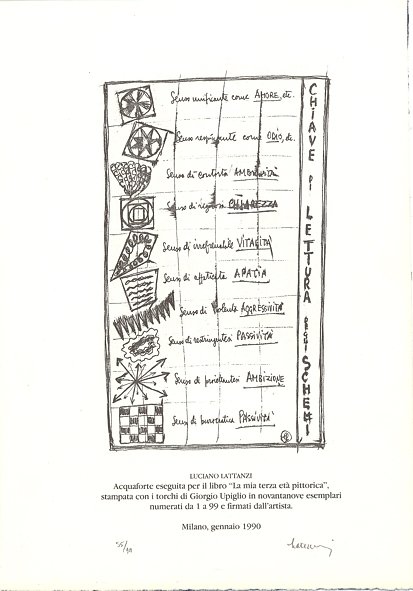 Senso unificante come AMORE, etc.
Senso respingente come ODIO, etc.
Senso di contorta AMBIGUITÀ
Senso di rigorosa CHIAREZZA
Senso di irrefrenabile VITALITÀ
Senso di APATIA
Senso di violenta AGGRESSIVITÀ
Senso di restringentesi PASSIVITÀ
Senso di proiettantesi AMBIZIONE
Senso di burocratica PASSIVITÀ
CHIAVE DI LETTURA DEGLI SCHEMI
LUCIANO LATTANZI
Acquaforte eseguita per il libro "La mia terza età pittorica",
stampata con i torchi di Giorgio Upiglio in novantanove esemplari
numerati da 1 a 99 e firmati dall'artista.
Milano, gennaio 1990